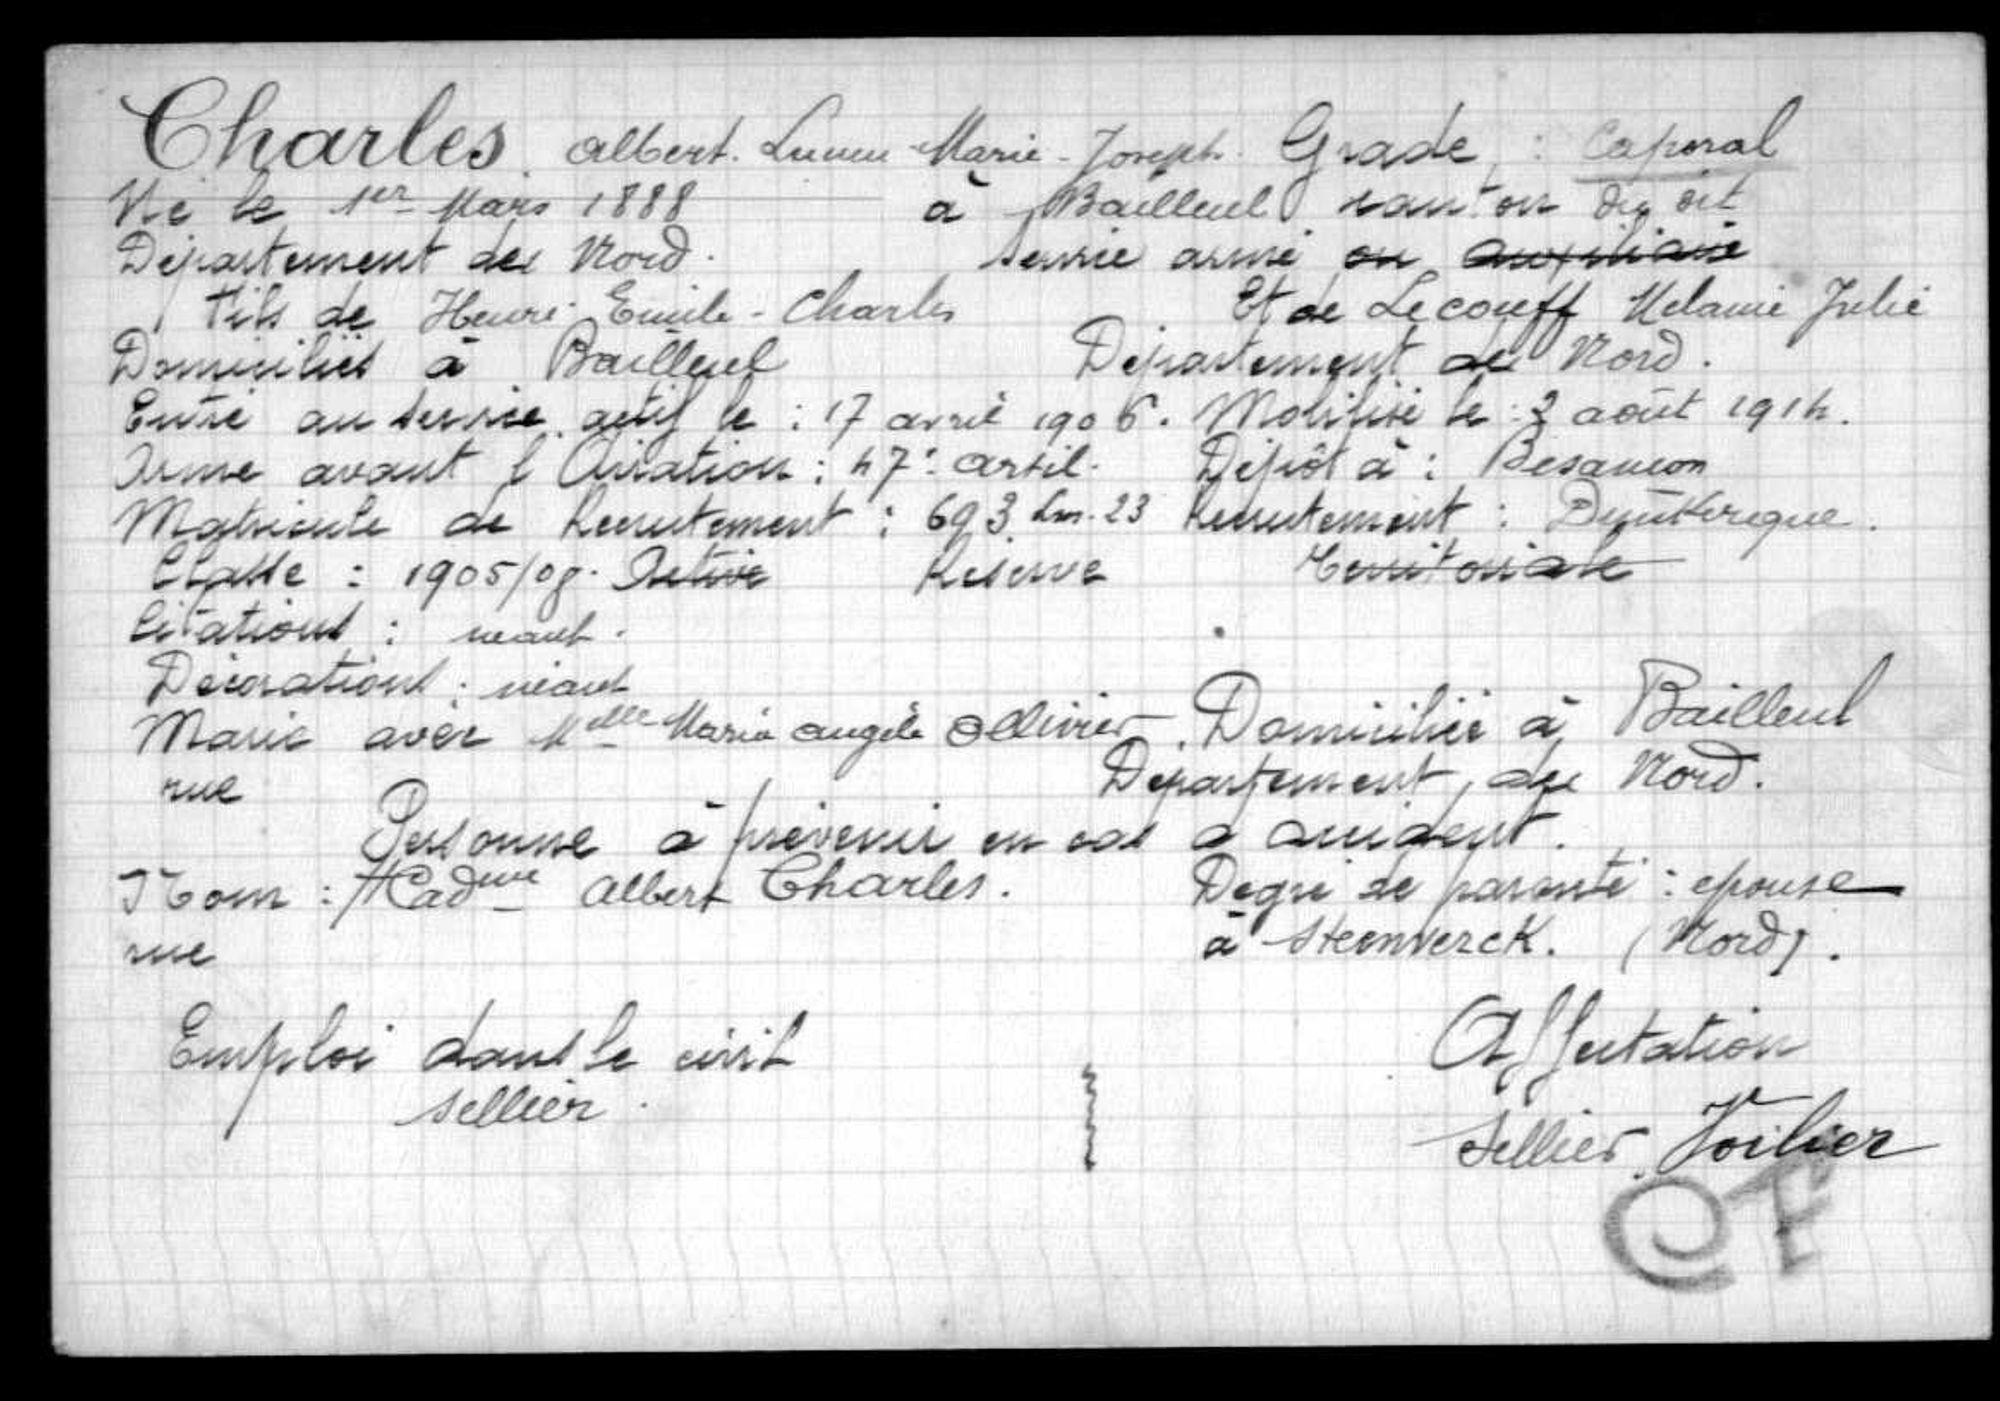 Charles Albert. Lucien Marie-Joseph. Grade : Caporal
Né le 1er Mars 1888 à Bailleul canton du dit
Département du Nord. service armé ou auxiliaire
Fils de Henri-Emile-Charles Et de Lecouff Melanie Julie
Domiciliés à Bailleul Département du Nord.
Entré au service actif le : 17 avril 1906. Mobilisé le : 3 août 1914.
Arme avant l'Aviation : 47e artil. Dépôt à : Besançon
Matricule de Recrutement : 693 Lm. 23 Recrutement : Dunkerque.
Classe : 1905/08. Active Réserve Territoriale
Citations : néant.
Décorations : néant
Marié avec Melle Maria Angèle Ollivier. Domiciliée à Bailleul
rue Département du Nord.
Personne à prévenir en cas d'accident.
Nom : Madme Albert Charles. Degré de parenté : épouse
rue à Steenwerck. (Nord).
Emploi dans le civil Affectation
sellier. Sellier Voilier